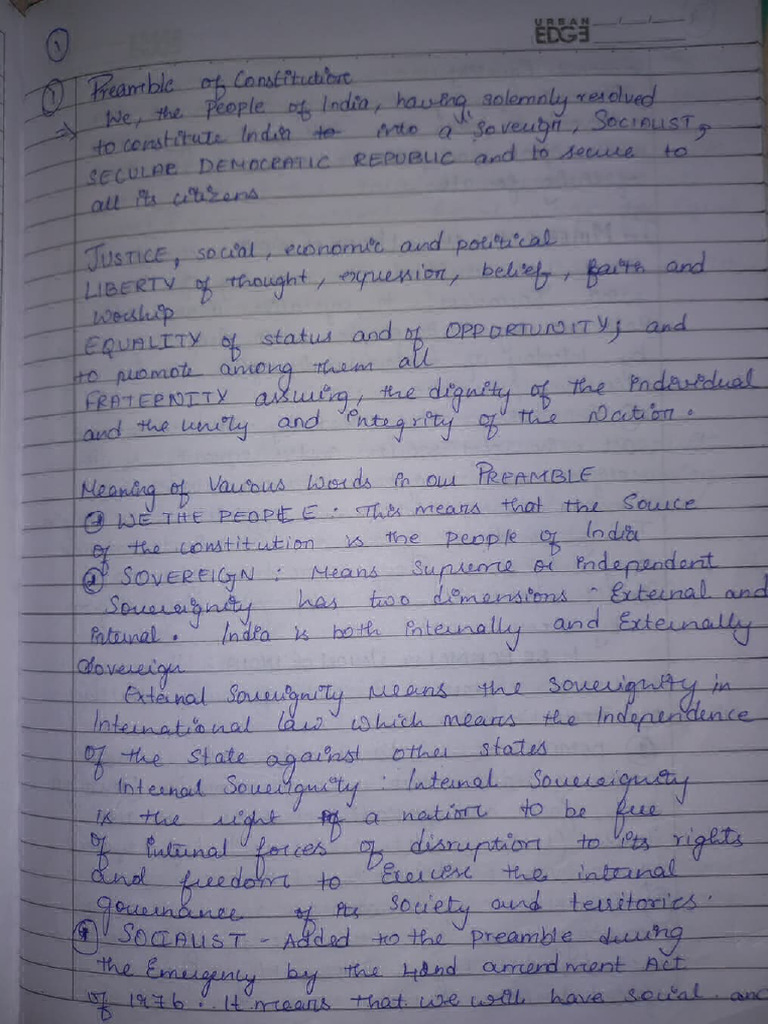 1
URBAN
EDGE
1 Preamble of Constitution
⇒ We, the People of India, having solemnly resolved
to constitute India to into a Soveign, SOCIALIST,
SECULAR DEMOCRATIC REPUBLIC and to secure to
all its citizens
JUSTICE, social, economic and political
LIBERTY of thought, expression, belief, faith and
Worship
EQUALITY of status and of OPPORTUNITY; and
to promote among them all
FRATERNITY assuring, the dignity of the individual
and the unity and integrity of the Nation.
Meaning of Various Words in our PREAMBLE
WE THE PEOPLE : This means that the Source
of the constitution is the people of India
SOVEREIGN : Means Supreme or Independent
Sovereignity has two dimensions - External and
internal. India is both internally and Externally
Sovereign
External Soveriegnity Means the Soveriegnity in
International law which means the Independence
of the State against other states
Internal Soveriegnity : Internal Sovereignity
is the right of a nation to be free
of internal forces of disruption to its rights
and freedom to Exercise the internal
governance of its Society and territories.
SOCIALIST - Added to the preamble during
the Emergency by the 42nd amendment Act
of 1976. It means that we will have social and